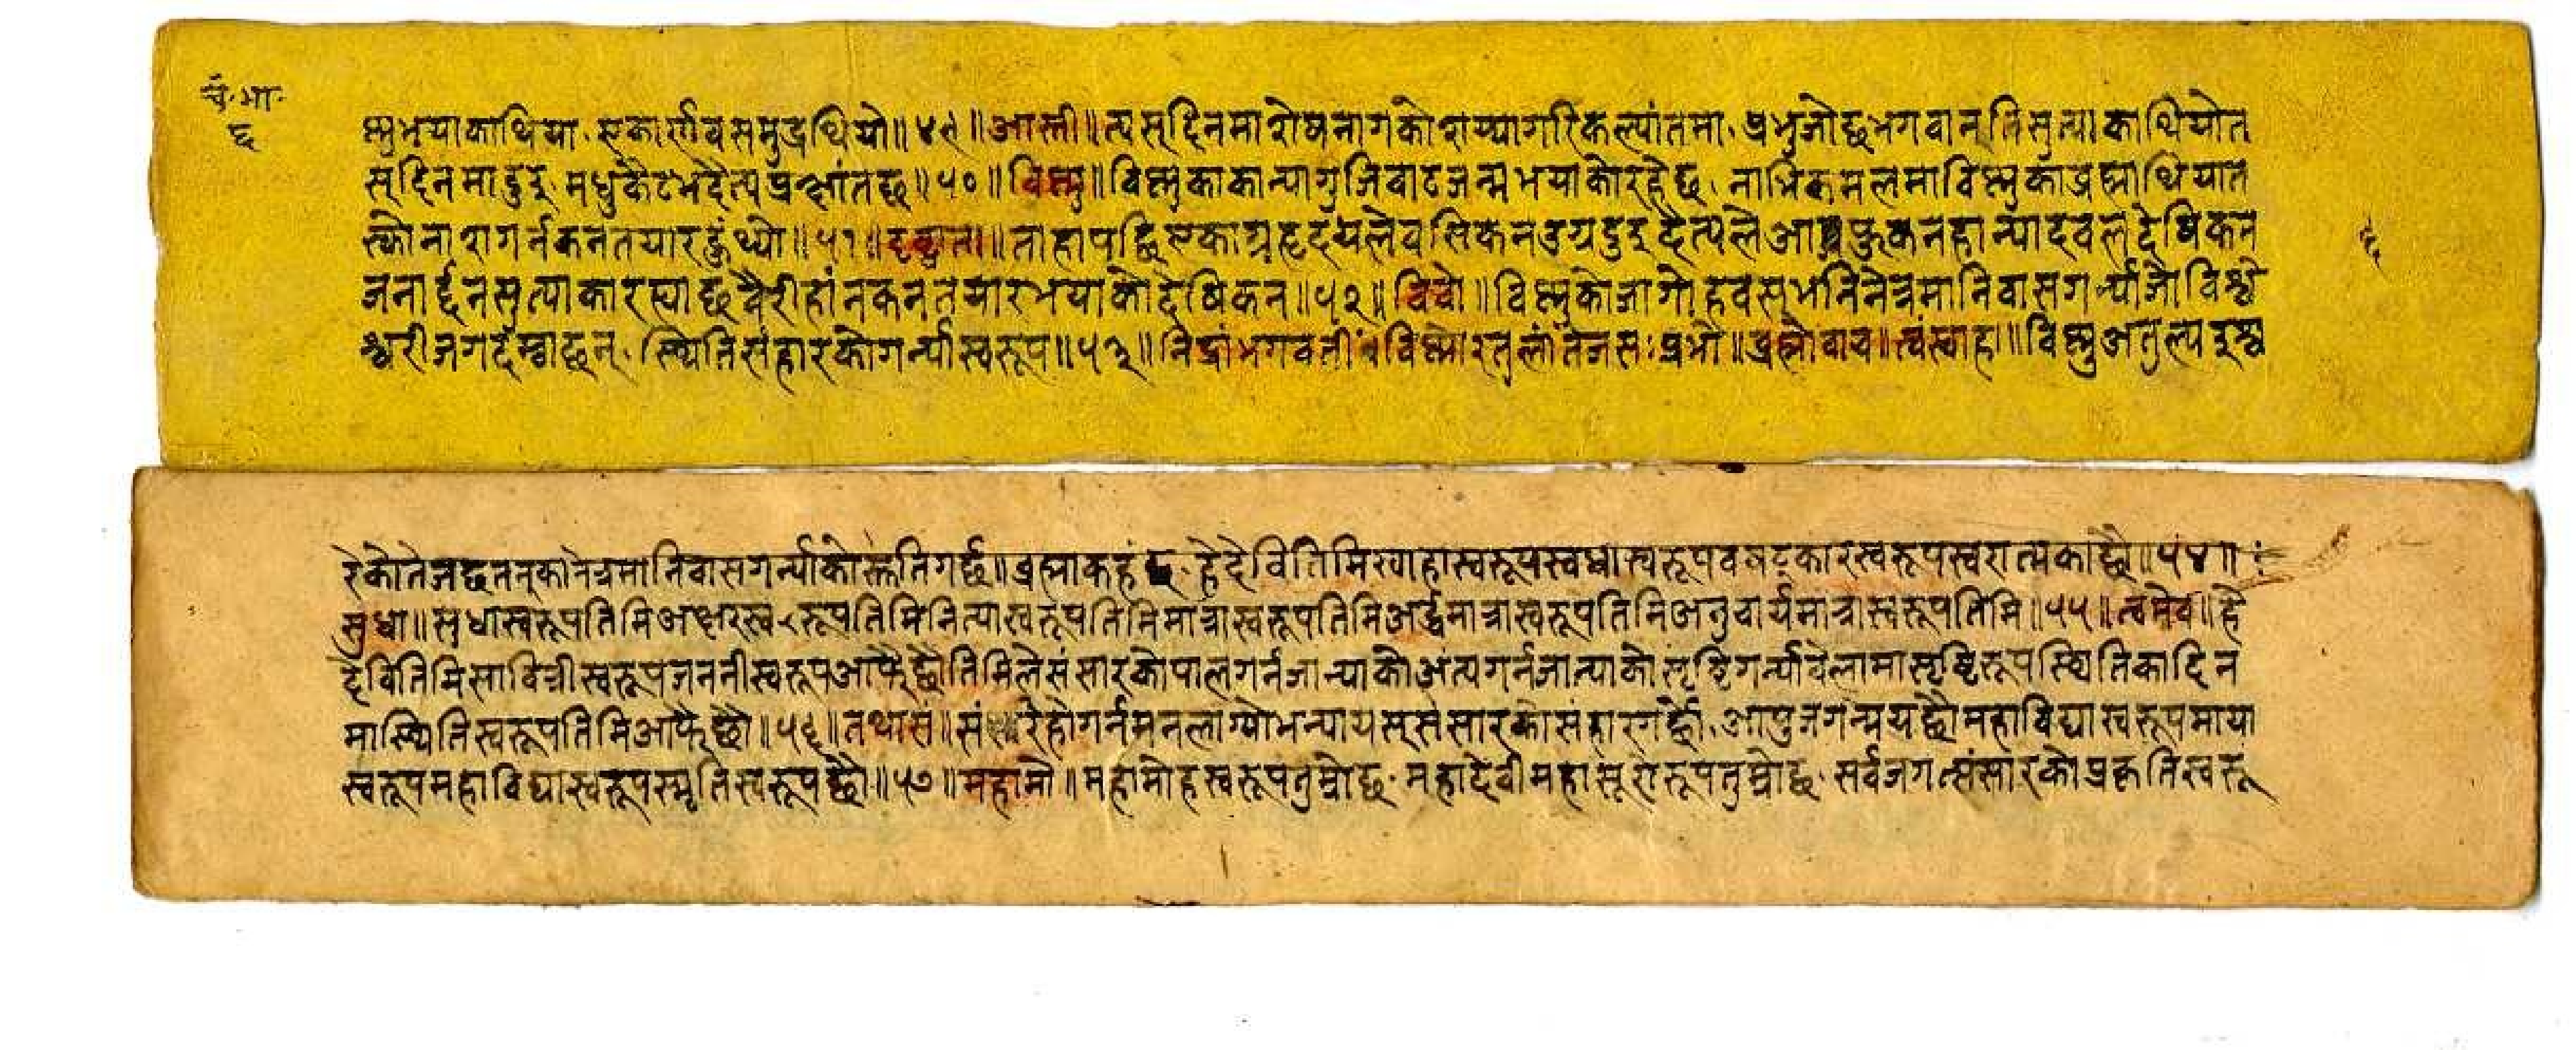 चं.भा.
६
ष्णुभयाकाथिया, एकार्णवसमुद्रथियो॥४९॥आस्ती॥त्यसदिनमाशेषनागकोशय्यागरिकल्पांतमा, प्रभुजोछभगवान्तिसुत्याकाथियोत
सदिनमादुइ, मधुकैटभदैत्यप्रख्यांतछ॥५०॥विष्णु॥विष्णुकाकान्यागुजिवाटजन्मभयाकोरहेछ, नाभिकमलमाविष्णुकाब्रह्माथियात
स्कोनाशगर्नकनतयारहुंथ्यो॥५१॥दृष्ट्वाता॥ताहापछिएकाग्रहृदयलेवसिकनउग्रदुइदैत्यलेआफुकनहान्यादवलदेषिकन
जनार्द्दनसुत्याकारह्याछवैरीहांनकनतयारभयाकोदेषिकन॥५२॥विवो॥विष्णुकोजागोहवसभनिनेत्रमानिवासगर्न्याजोविश्वे
श्वरीजगदम्वाछन्, स्थितिसंहारकोगर्न्यास्वरूप॥५३॥निद्रांभगवतीविष्णोरतुलांतेजसःप्रभो॥ब्रह्मोवाच॥त्वंस्वाहा॥विष्णुअतुल्यइश्व
६
रैकोतेजछननकानेत्रमानिवासगर्न्याकोस्तुतिगर्छ॥ब्रह्माकहंछ, हेदेवितिमिस्वाहास्वरूपस्वधास्वरूपवषट्कारस्वरूपस्वरात्मकाछौ॥५४॥
सुधा॥सुधास्वरूपतिमिअक्षरस्वरूपतिमिनित्यास्वरूपतिमिमात्रास्वरूपतिमिअर्द्धमात्रास्वरूपतिमिअनुचार्यमात्रास्वरूपतिमि॥५५॥त्वमेव॥हे
देवितिमिसावित्रीस्वरूपजननीस्वरूपआफैछौतिमिलेसंसारकोपालगर्नजान्याकोअंत्यगर्नजान्याकोसृष्टिगर्न्यावेलामासृष्टिरूपस्थितिकादिन
मास्थितिस्वरूपतिमिआफैछौ॥५६॥तथासं॥संहारैहोगर्नमनलाग्योभन्यायससंसारकोसंहारगर्छौ, आपुजगन्मयछौमहाविद्यास्वरूपमाया
स्वरूपमहाविद्यास्वरूपस्मृतिस्वरूपछौ॥५७॥महामो॥महामोहस्वरूपतुम्रोछ, महादेवीमहासूरीरूपतुम्रोछ, सर्वजगत्संसारकोप्रकृतिस्वरू